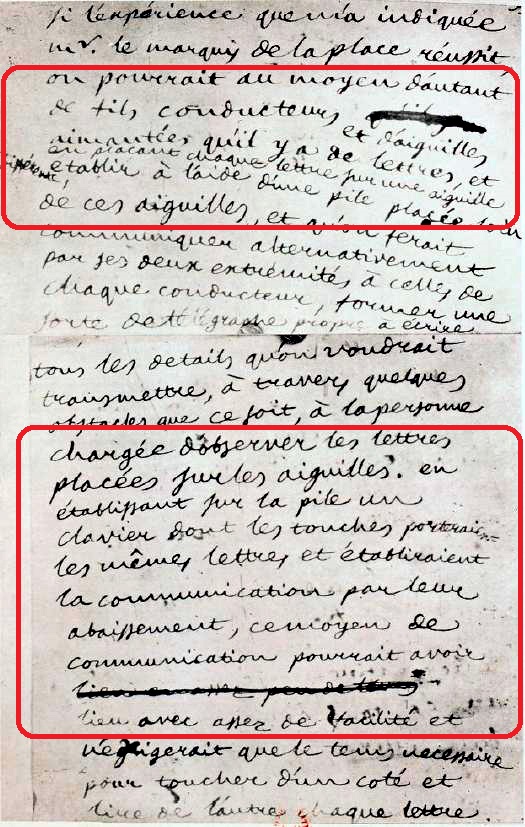 si l'expérience que m'a indiquée
mr. le marquis de la place réussit,
on pourrait au moyen d'autant
de fils conducteurs et d'aiguilles
aimantées qu'il y a de lettres, et
en plaçant chaque lettre sur une aiguille
établir à l'aide d'une pile placée loin
de ces aiguilles, et qu'on ferait
communiquer alternativement
par ses deux extrémités à celles de
chaque conducteur, former une
sorte de télégraphe propre à écrire
tous les details qu'on voudrait
transmettre, à travers quelques
obstacles que ce soit, à la personne
chargée d'observer les lettres
placées sur les aiguilles. en
établissant sur la pile un
clavier dont les touches porteraient
les mêmes lettres et établiraient
la communication par leur
abaissement, ce moyen de
communication pourrait avoir
lieu avec assez de facilité et
n'exigerait que le tems necessaire
pour toucher d'un coté et
lire de l'autre chaque lettre.